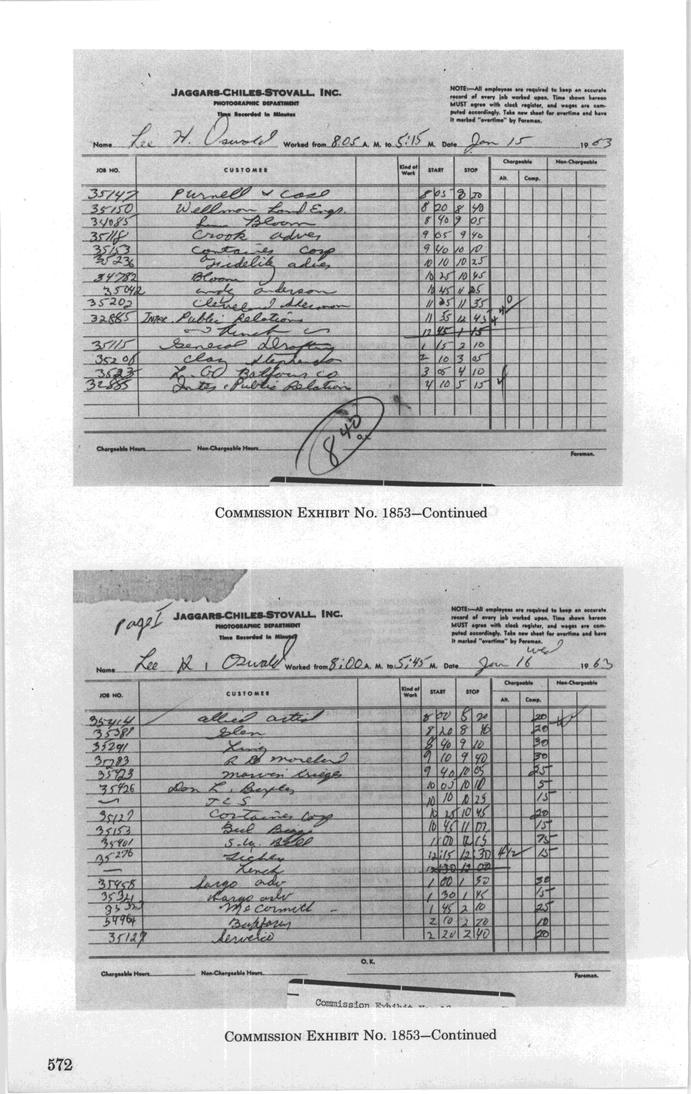 JAGGARS-CHILES-STOVALL, INC.
PHOTOGRAPHIC DEPARTMENT
Time Recorded in Minutes
NOTE:—All employees are required to keep an accurate
record of every job worked upon. Time shown hereon
MUST agree with clock register, and wages are com-
puted accordingly. Take new sheet for overtime and have
it marked "overtime" by Foreman.
Name Lee H. Oswald Worked from 8:05 A. M. to 5:15 M. Date Jan 15 1963
JOB NO. CUSTOMER Kind of Work START STOP Chargeable Non-Chargeable
Alt. Comp.
35147 Purnell & Case 8 05 8 20
35150 Wellmon Land Engr. 8 20 8 40
34085 Bloom 8 40 9 05
35118 Crook adves 9 05 9 40
35153 Container Corp 9 40 10 10
35236 Fidelity adves 10 10 10 25
34782 Bloom 10 25 10 45
35042 andy anderson 10 45 11 25
35202 11 25 11 35
32885 Inter. Public Relations 11 35 12 45
Lunch 12 45 1 15
35115 General Drafting 1 15 2 10
35206 Clay 2 10 3 05
L. G. Balfour Co 3 05 4 10
32885 Inter. Public Relation 4 10 5 15
8 40
Chargeable Hours Non-Chargeable Hours
Foreman.
COMMISSION EXHIBIT No. 1853—Continued
page I
JAGGARS-CHILES-STOVALL, INC.
PHOTOGRAPHIC DEPARTMENT
Time Recorded in Minutes
NOTE:—All employees are required to keep an accurate
record of every job worked upon. Time shown hereon
MUST agree with clock register, and wages are com-
puted accordingly. Take new sheet for overtime and have
it marked "overtime" by Foreman.
wed
Name Lee H. Oswald Worked from 8:00 A. M. to 5:45 M. Date Jan 16 1963
JOB NO. CUSTOMER Kind of Work START STOP Chargeable Non-Chargeable
Alt. Comp.
35414 allied artist 8 00 8 20 20
35381 Glen 8 20 8 40 20
35291 King 8 40 9 10 30
35283 R. D. moreland 9 10 9 40 30
35423 9 40 10 05 25
35426 Don L. Baxter 10 05 10 10 5
J C S 10 10 10 25 15
35127 Container Corp 10 25 10 45 20
35153 10 45 11 00 15
35401 S.W. Bell 11 00 12 15 75
35276 12:15 12:30 15
Lunch 12 30 1 00
35458 Largo adv 1 00 1 30 30
35321 Largo adv 1 30 1 45 15
McCormick 1 45 2 10 25
2 10 2 20 10
35127 2 20 2 40 20
O. K.
Chargeable Hours Non-Chargeable Hours
Foreman.
Commission Exhibit No.
COMMISSION EXHIBIT No. 1853—Continued
572